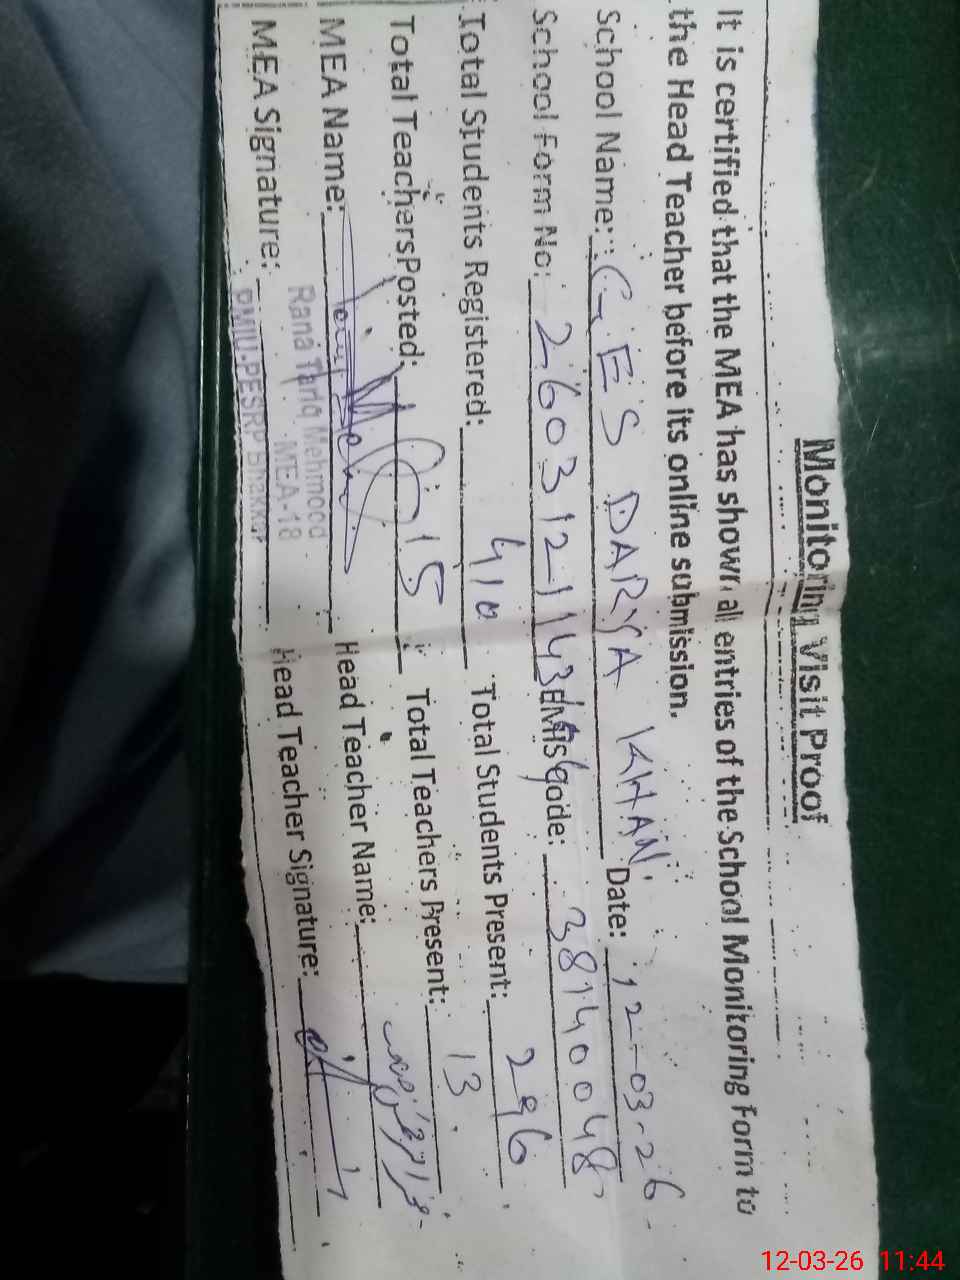 Monitoring Visit Proof
It is certified that the MEA has shown all entries of the School Monitoring Form to
the Head Teacher before its online submission.
School Name: GES DARYA KHAN Date: 12-03-26
School Form No: 2603121143 EMIS Code: 38140048
Total Students Registered: 410 Total Students Present: 296
Total Teachers Posted: 15 Total Teachers Present: 13
MEA Name: Head Teacher Name:
Rana Tariq Mehmood
MEA-18
PMIU-PESRP Bhakkar
MEA Signature: Head Teacher Signature:
12-03-26 11:44